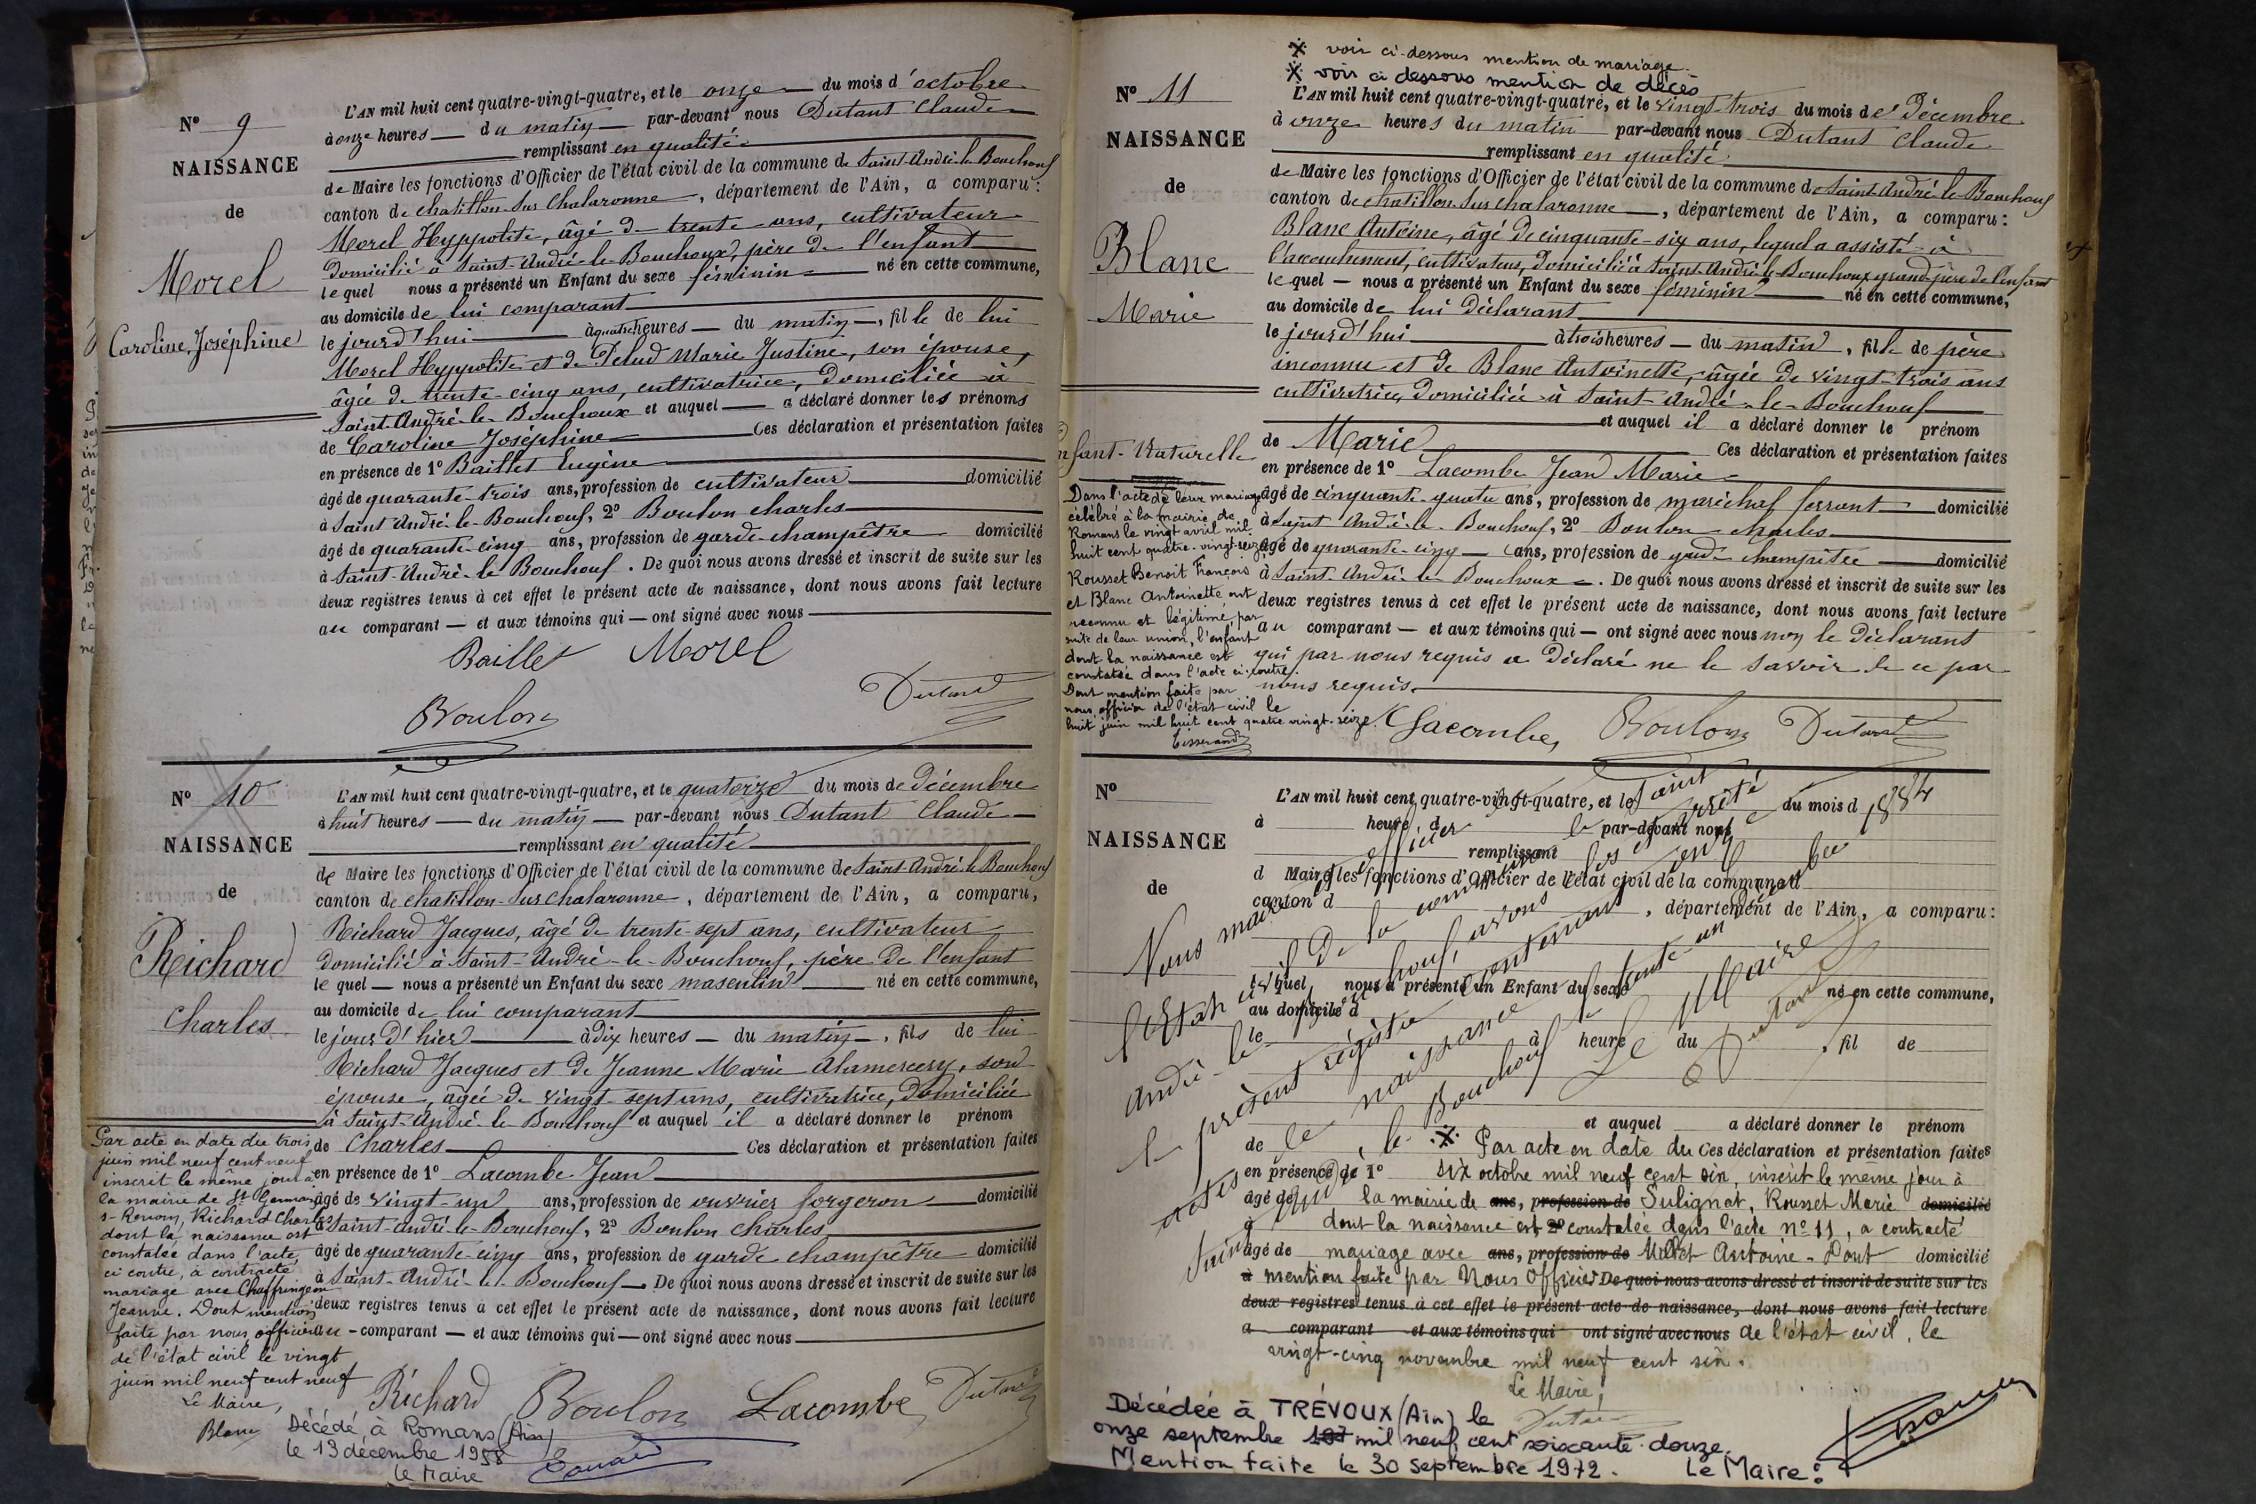 N° 9
NAISSANCE
de
Morel
Caroline Joséphine
L'AN mil huit cent quatre-vingt-quatre, et le onze du mois d'octobre
à onze heures du matin par-devant nous Dutant Claude
remplissant en qualité
de Maire les fonctions d'Officier de l'état civil de la commune de Saint-André-le-Bouchoux
canton de Chatillon-sur-Chalaronne, département de l'Ain, a comparu :
Morel Hyppolite, âgé de trente ans, cultivateur
domicilié à Saint-André-le-Bouchoux, père de l'enfant
lequel nous a présenté un Enfant du sexe féminin né en cette commune,
au domicile de lui comparant
le jourd'hui à quatre heures du matin, fille de lui
Morel Hyppolite et de Marie Justine, son épouse,
âgée de trente-cinq ans, cultivatrice, domiciliée à
Saint-André-le-Bouchoux et auquel a déclaré donner les prénoms
de Caroline Joséphine Ces déclaration et présentation faites
en présence de 1° Baillet Eugène
âgé de quarante-trois ans, profession de cultivateur domicilié
à Saint André-le-Bouchoux, 2° Boulon Charles
âgé de quarante-cinq ans, profession de garde-champêtre domicilié
à Saint-André-le-Bouchoux. De quoi nous avons dressé et inscrit de suite sur les
deux registres tenus à cet effet le présent acte de naissance, dont nous avons fait lecture
au comparant et aux témoins qui ont signé avec nous
Baillet Morel
Boulon Dutant
N° 10
NAISSANCE
de
Richard
Charles
L'AN mil huit cent quatre-vingt-quatre, et le quatorze du mois de Décembre
à huit heures du matin par-devant nous Dutant Claude
remplissant en qualité
de Maire les fonctions d'Officier de l'état civil de la commune de Saint-André-le-Bouchoux
canton de Chatillon-sur-Chalaronne, département de l'Ain, a comparu,
Richard Jacques, âgé de trente-sept ans, cultivateur
domicilié à Saint-André-le-Bouchoux, père de l'enfant
lequel nous a présenté un Enfant du sexe masculin né en cette commune,
au domicile de lui comparant
le jour d'hier à dix heures du matin, fils de lui
Richard Jacques et de Jeanne Marie Alamercery, son
épouse, âgée de vingt-sept ans, cultivatrice, domiciliée
à Saint-André-le-Bouchoux et auquel il a déclaré donner le prénom
de Charles Ces déclaration et présentation faites
en présence de 1° Lacombe Jean
âgé de vingt-un ans, profession de ouvrier forgeron domicilié
à Saint André-le-Bouchoux, 2° Boulon Charles
âgé de quarante-cinq ans, profession de garde champêtre domicilié
à Saint-André-le-Bouchoux. De quoi nous avons dressé et inscrit de suite sur les
deux registres tenus à cet effet le présent acte de naissance, dont nous avons fait lecture
au comparant et aux témoins qui ont signé avec nous
Richard Boulon Lacombe Dutant
Par acte en date du trois
juin mil neuf cent neuf
inscrit le même jour à
la mairie de St Germain
s-Renom, Richard Charles
dont la naissance est
constatée dans l'acte
ci contre, a contracté
mariage avec Chaffringeon
Jeanne. Dont mention
faite par nous officier
de l'état civil le vingt
juin mil neuf cent neuf
Le Maire,
Blanc
Décédé à Romans (Ain)
le 13 décembre 1958
Le Maire
※ voir ci-dessous mention de mariage.
※ voir ci dessous mention de décès
N° 11
NAISSANCE
de
Blanc
Marie
Enfant Naturelle
L'AN mil huit cent quatre-vingt-quatre, et le vingt-trois du mois de Décembre
à onze heures du matin par-devant nous Dutant Claude
remplissant en qualité
de Maire les fonctions d'Officier de l'état civil de la commune de Saint-André-le-Bouchoux
canton de chatillon-sur-chalaronne, département de l'Ain, a comparu :
Blanc Antoine, âgé de cinquante-six ans, lequel a assisté à
l'accouchement, cultivateur, domicilié à Saint-André-le-Bouchoux grand-père de l'enfant
lequel nous a présenté un Enfant du sexe féminin né en cette commune,
au domicile de lui déclarant
le jourd'hui à trois heures du matin, fille de père
inconnu et de Blanc Antoinette, âgée de vingt-trois ans
cultivatrice, domiciliée à Saint-André-le-Bouchoux
et auquel il a déclaré donner le prénom
de Marie Ces déclaration et présentation faites
en présence de 1° Lacombe Jean Marie
âgé de cinquante-quatre ans, profession de maréchal ferrant domicilié
à Saint André-le-Bouchoux, 2° Boulon Charles
âgé de quarante-cinq ans, profession de garde champêtre domicilié
à Saint André-le-Bouchoux. De quoi nous avons dressé et inscrit de suite sur les
deux registres tenus à cet effet le présent acte de naissance, dont nous avons fait lecture
au comparant et aux témoins qui ont signé avec nous non le déclarant
qui par nous requis a déclaré ne le savoir de ce par
nous requis.
Lacombe Boulon Dutant
Dans l'acte de leur mariage
célébré à la mairie de
Romans le vingt avril mil
huit cent quatre-vingt-seize
Rousset Benoit François
et Blanc Antoinette ont
reconnu et légitimé, par
suite de leur union, l'enfant
dont la naissance est
constatée dans l'acte ci-contre.
Dont mention faite par
nous officier de l'état civil le
huit juin mil huit cent quatre vingt-seize.
Tisserand
N°
NAISSANCE
de
L'AN mil huit cent quatre-vingt-quatre, et le du mois d
à heure d par-devant nous
remplissant
d Maire les fonctions d'Officier de l'état civil de la commune d
canton d , département de l'Ain, a comparu :
lequel nous a présenté un Enfant du sexe né en cette commune,
au domicile d
le à heure du , fil de
et auquel a déclaré donner le prénom
de Ces déclaration et présentation faites
en présence de 1°
âgé de ans, profession de domicilié
à 2°
âgé de ans, profession de domicilié
à De quoi nous avons dressé et inscrit de suite sur les
deux registres tenus à cet effet le présent acte de naissance, dont nous avons fait lecture
a comparant et aux témoins qui ont signé avec nous
Nous maire officier de
l'Etat civil de la commune de Saint
André-le-Bouchoux, avons clos et arrêté
le présent registre contenant onze
actes de naissance le trente-un Décembre 1884
Saint André-le-Bouchoux
Le Maire
Dutant
※ Par acte en date du
six octobre mil neuf cent six, inscrit le même jour à
la mairie de Sulignat, Rousset Marie
dont la naissance est constatée dans l'acte n° 11, a contracté
mariage avec Millet Antoine. Dont
mention faite par Nous Officier
de l'état civil, le
vingt-cinq novembre mil neuf cent six.
Le Maire,
Dutant
Décédée à TRÉVOUX (Ain) le
onze septembre mil neuf cent soixante douze.
Mention faite le 30 septembre 1972. Le Maire :